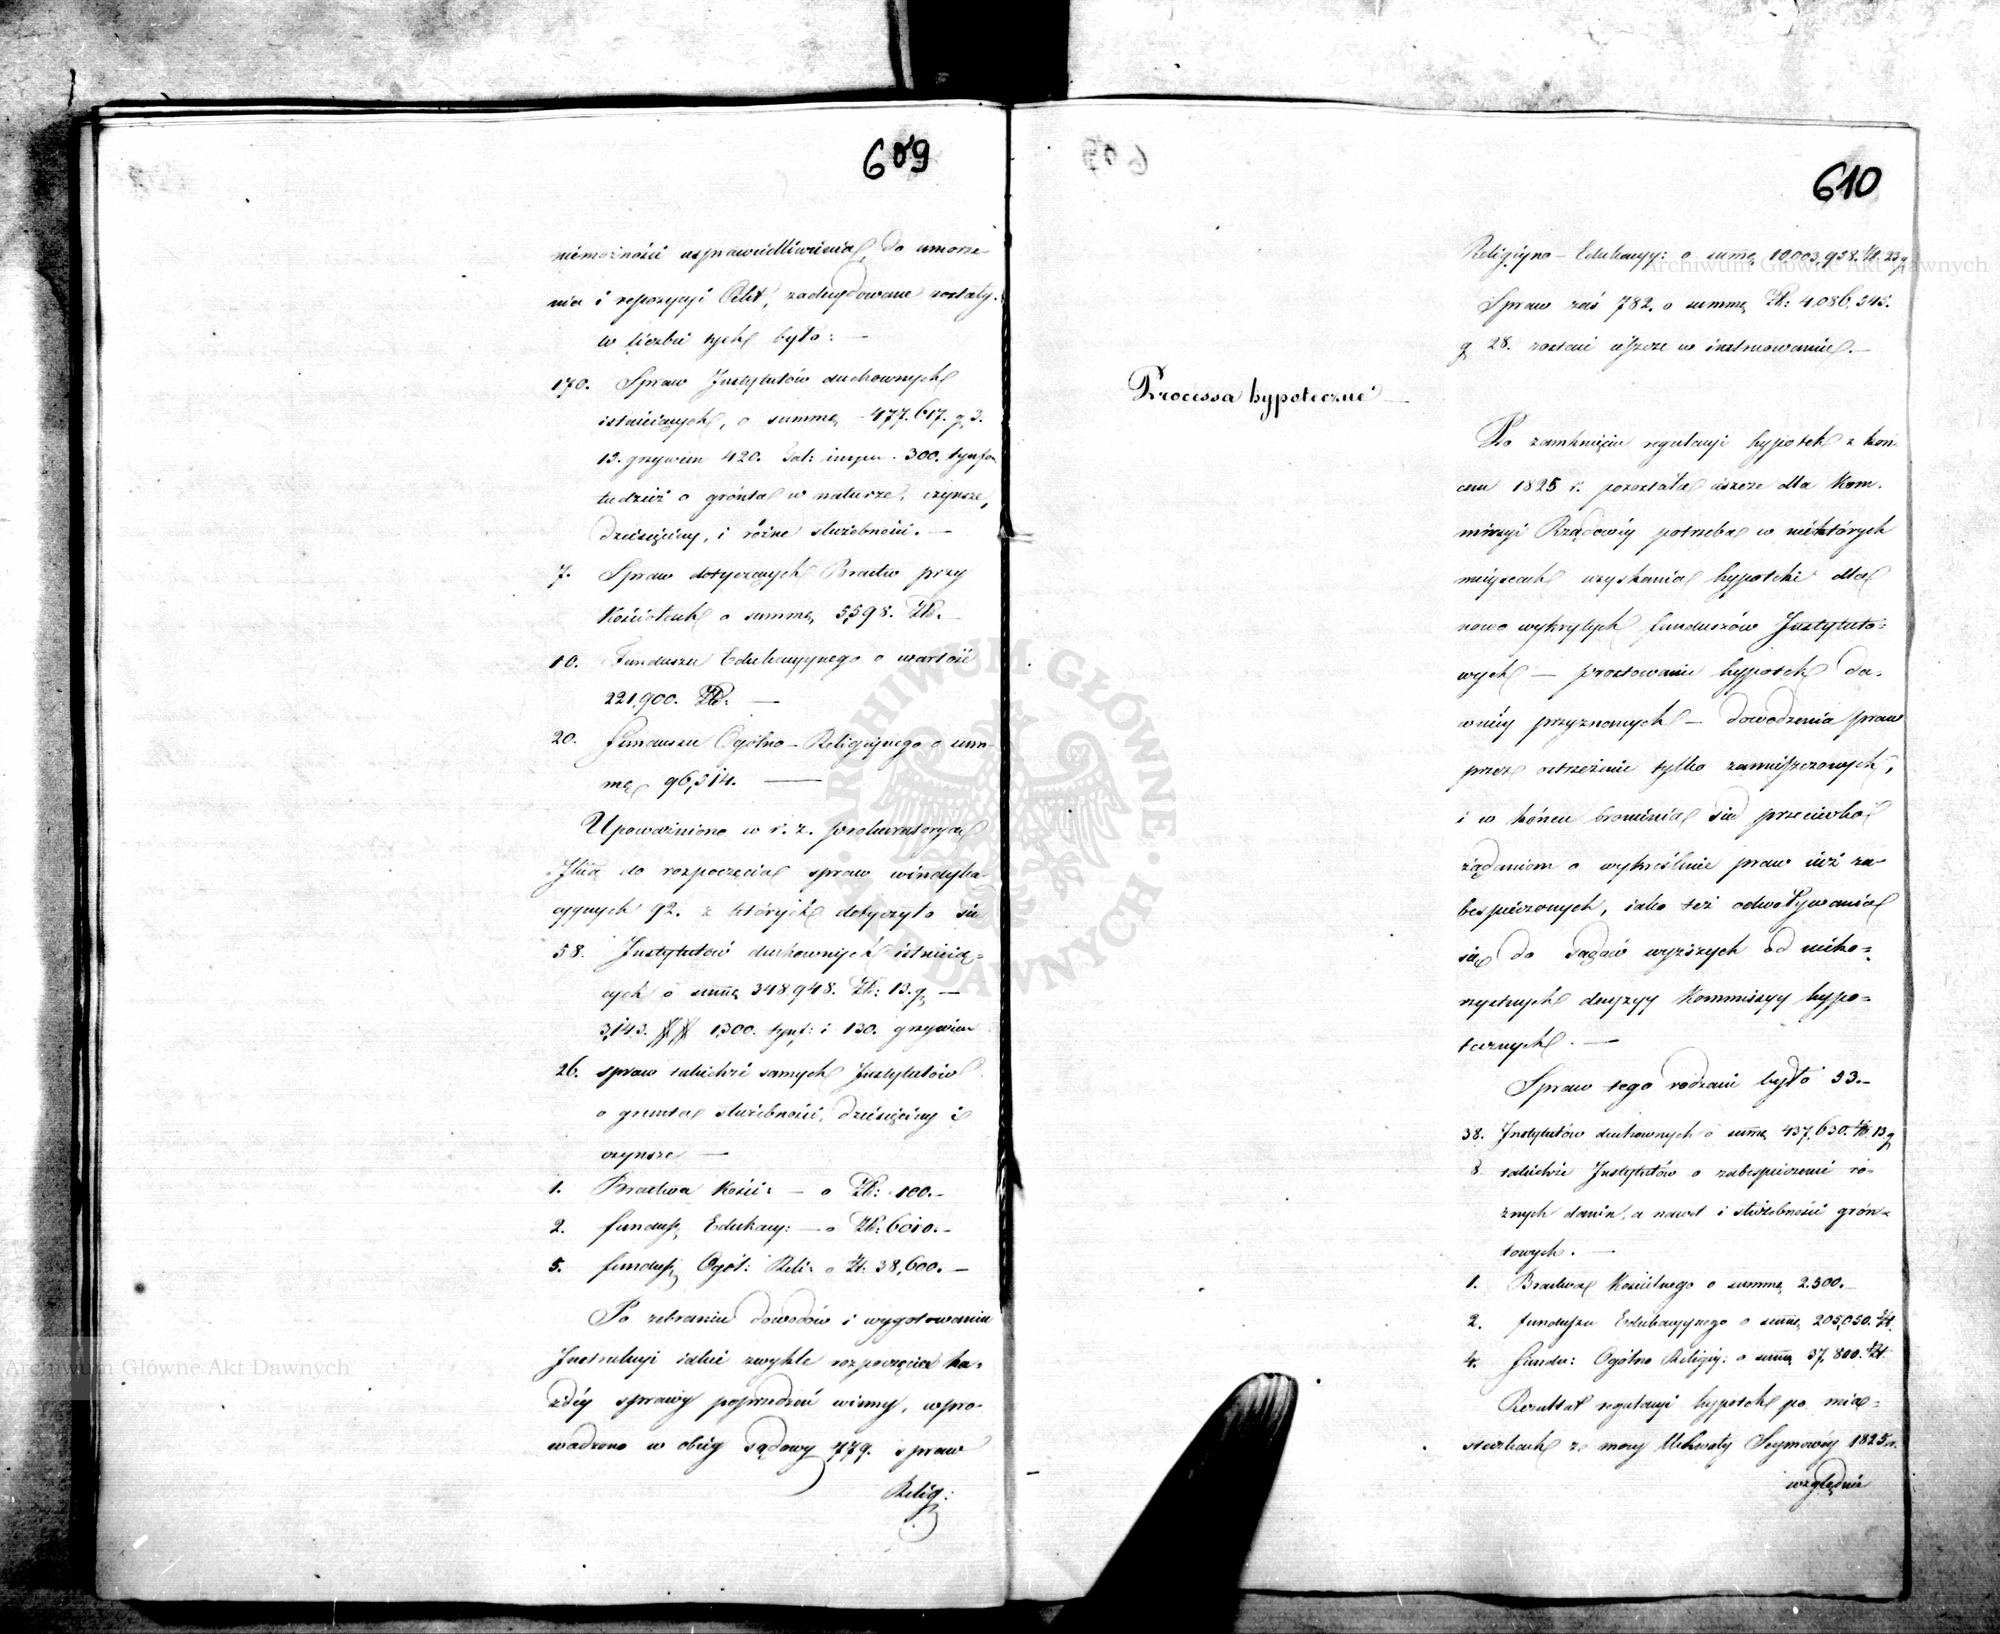 609
niemożności usprawiedliwienia, do umorze-
nia i repozycyi Akt, zadecydowane zostały.
w liczbie tych było: —
170. Spraw Instytutów duchownych
istnieiących, o summę 477.617. g 3.
13. grzywien 420. Tal: imper. 300. tynfów
tudzież o grónta w naturze, czynsze,
dziesięciny, i różne służebności. —
7. Spraw dotyczących Bractw przy
Kościołach o summę 5,598. Zł. —
10. Funduszu Edukacyjnego o wartość
221,900. Zł. —
20. funduszu Ogólno-Religijnego o sum-
mę 96,514. —
Upoważniono w r. z. prokuratoryą
Jlną do rozpoczęcia spraw windyka-
cyjnych 92. z których dotyczyło się
58. Instytutów duchownych istnieią-
cych o summę 348948. Zł: 13. g —
3,143. 1,300. tynf: i 130. grzywien
26. spraw takichże samych Instytutów
o grunta służebności, dziesięciny i
czynsze —
1. Bractwa Kości: — o Zł: 100. —
2. fundusz Edukacy: — o Zł: 6010. —
5. fundusz Ogól: Reli: o Zł: 38,600. —
Po zebraniu dowodów i wygotowaniu
Instrukcyi iakie zwykle rozpoczęcie ka-
żdéy sprawy poprzedzać winny, wpro-
wadzono w obieg sądowy 779. spraw
Relig:
610
Religijno-Edukacyj: o summę 10,003,958. Zł. 23 g
Spraw zaś 782. o summę Zł: 4,086,545.
g 28. zostaie ieszcze w instruowaniu. —
Processa hypoteczne —
Po zamknięciu regulacyi hypotek z koń-
cem 1825 r. pozostała ieszcze dla Kom-
missyi Rządowéy potrzeba w niektórych
mieyscach uzyskania hypoteki dla
nowo wykrytych funduszów Instytuto-
wych — prostowanie hypotek da-
wniéy przyznanych — dowodzenia praw
przez ostrzeżenie tylko zamieszczonych,
i w końcu bronienia się przeciwko
żądaniom o wykreślenie praw iuż za-
bespieczonych, iako też odwoływania
się do Sądów wyższych od nieko-
rzystnych decyzyy Kommissyy hypo-
tecznych. —
Spraw tego rodzaiu było 53. —
38. Instytutów duchownych o summę 437,630. Zł. 13 g
8. takichże Instytutów o zabespieczenie ró-
żnych danin, a nawet i służebności grón-
towych. —
1. Bractwa Kościelnego o summę 2.300. —
2. funduszu Edukacyjnego o summę 205,050. Zł.
4. Fundu: Ogólno Religij: o summę 37,800. Zł.
Rezultat regulacyi hypotek po mia-
steczkach z mocy Uchwały Seymowéy 1825 r.
względnie